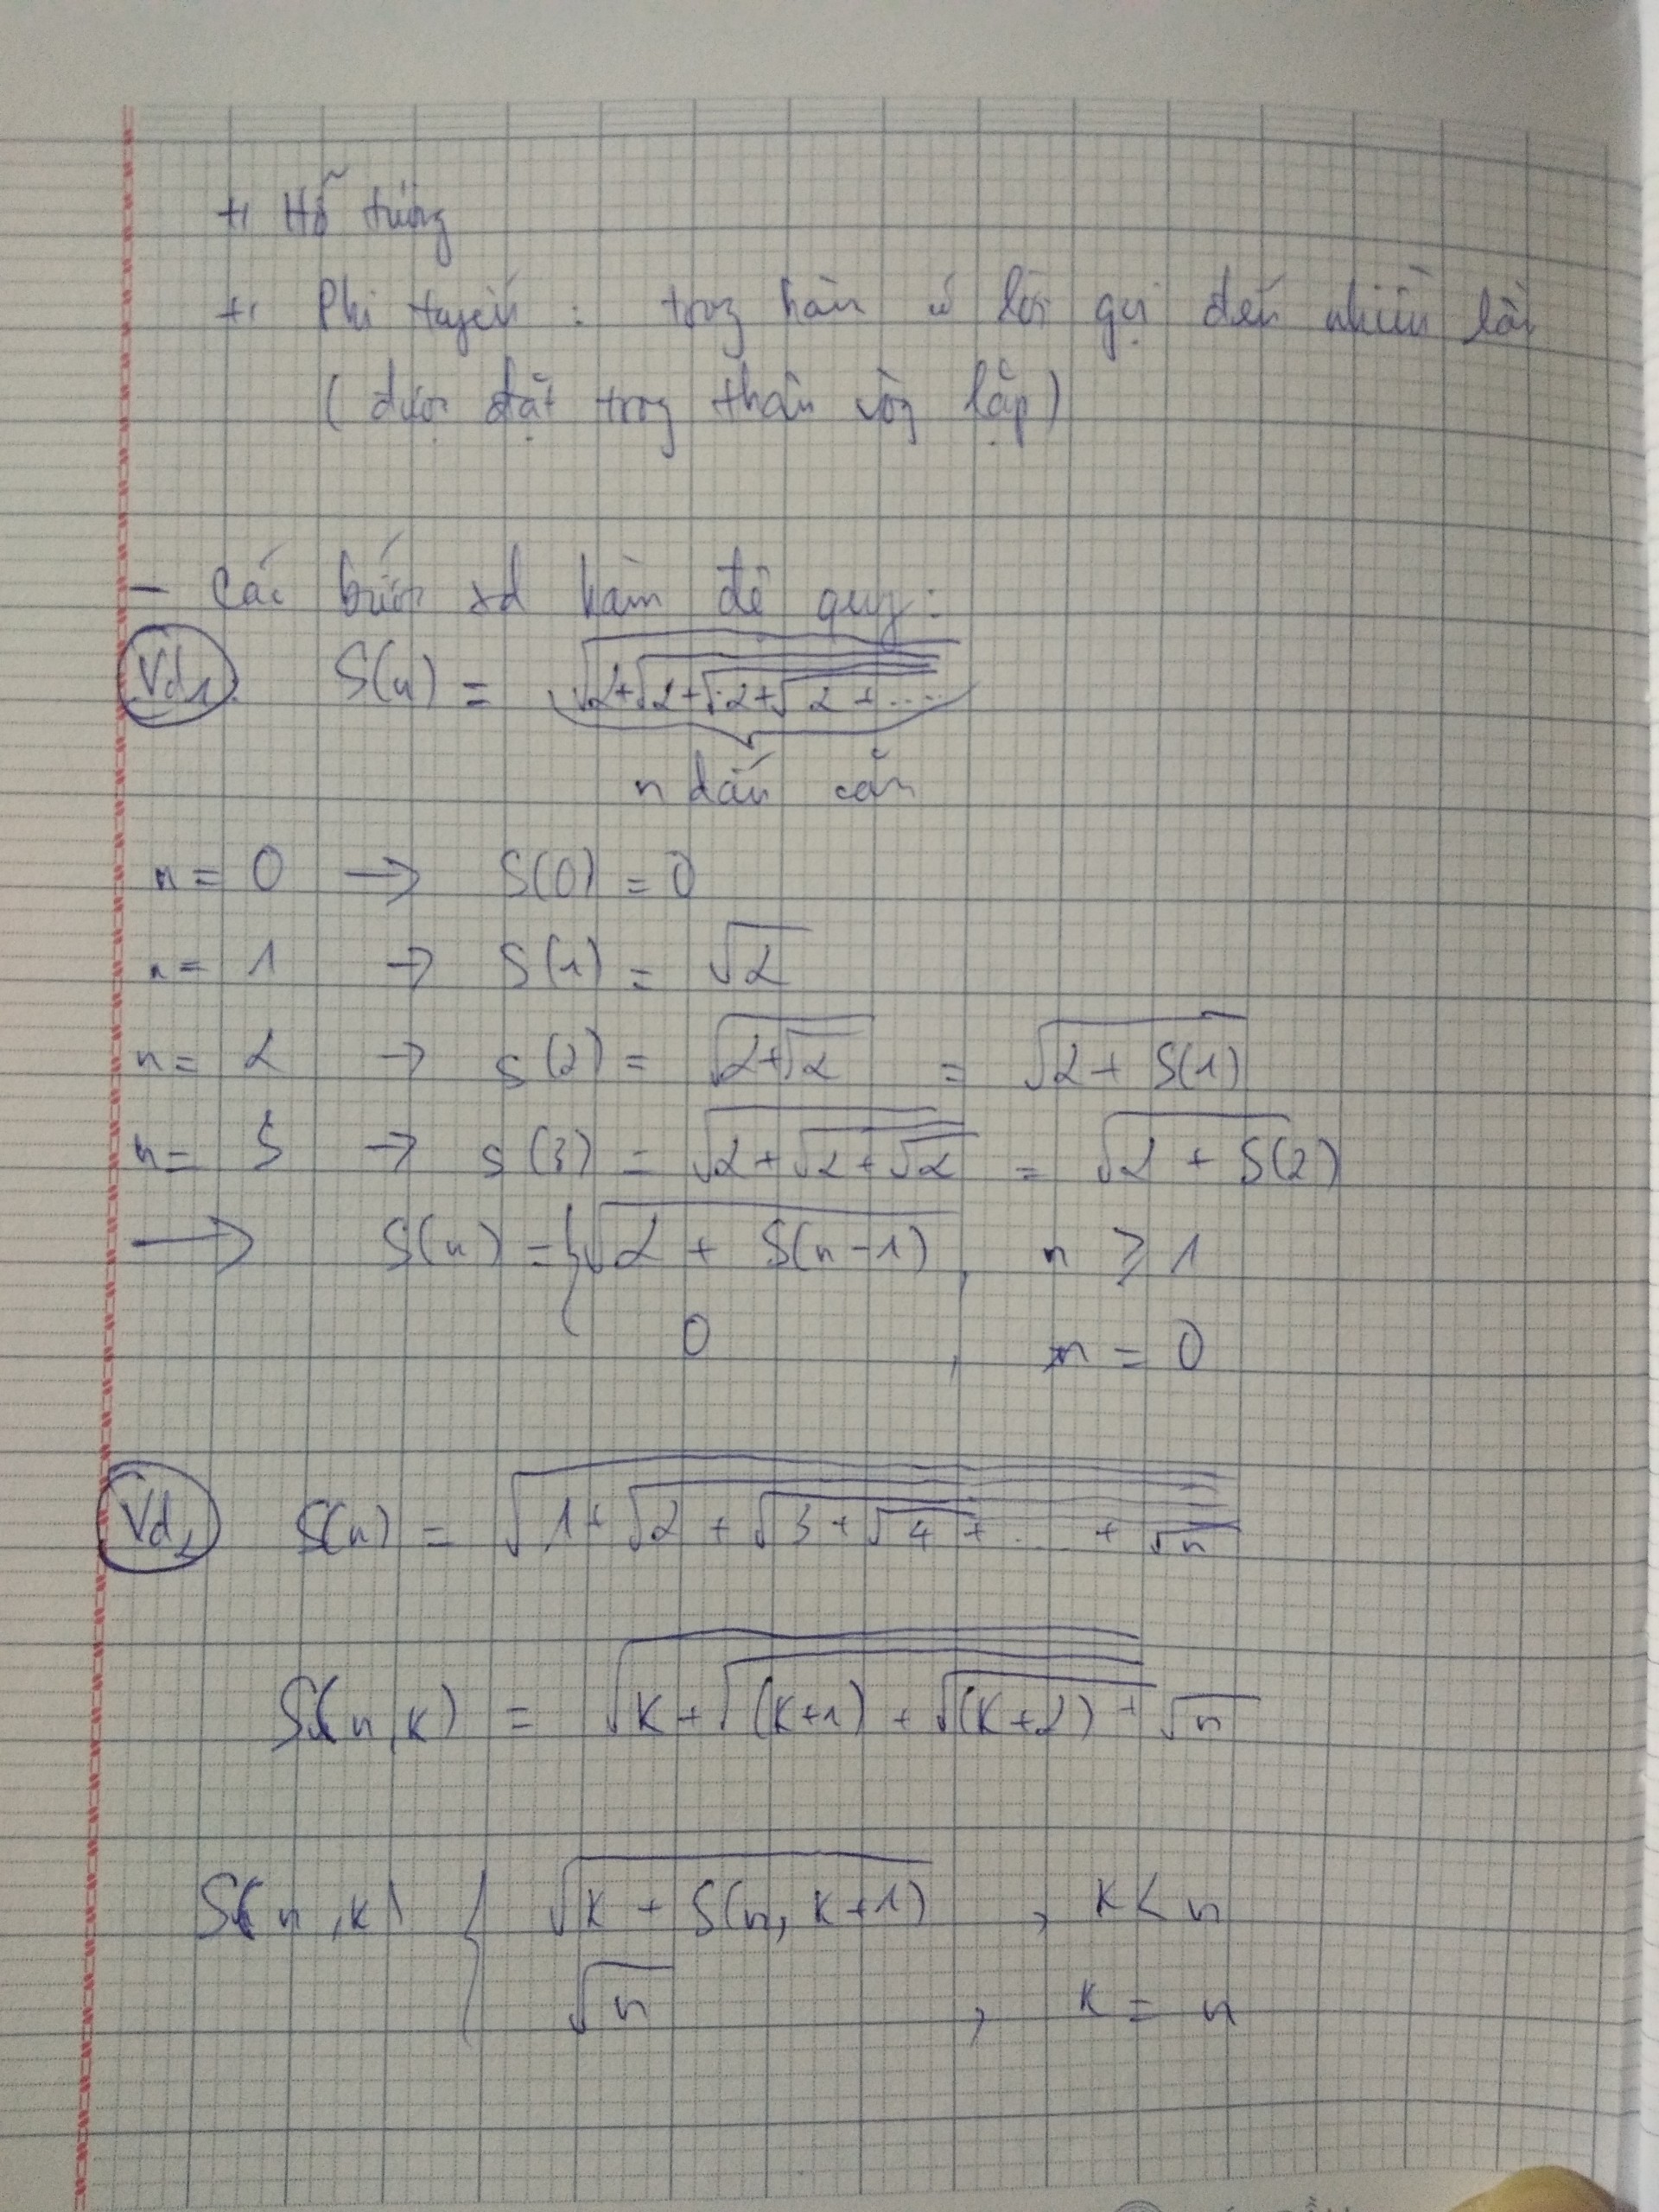 +, Hỗ tương
+, Phi tuyến : trong hàm có lời gọi đến nhiều lần
( được đặt trong thân vòng lặp)
- Các bước xd hàm đệ quy:
Vd1 S(n) = √(2+√(2+√(2+√(2+....
n dấu căn
n = 0 → S(0) = 0
n = 1 → S(1) = √2
n = 2 → S(2) = √(2+√2) = √(2 + S(1))
n = 3 → S(3) = √(2+√(2+√2)) = √(2 + S(2))
→ S(n) = { √(2 + S(n-1)) , n ≥ 1
0 , n = 0
Vd2 S(n) = √(1+√(2+√(3+√(4+....+√n))))
S(n,k) = √(k+√((k+1)+√((k+2)+√n)))
S(n,k) { √(k + S(n, k+1)) , k < n
√n , k = n